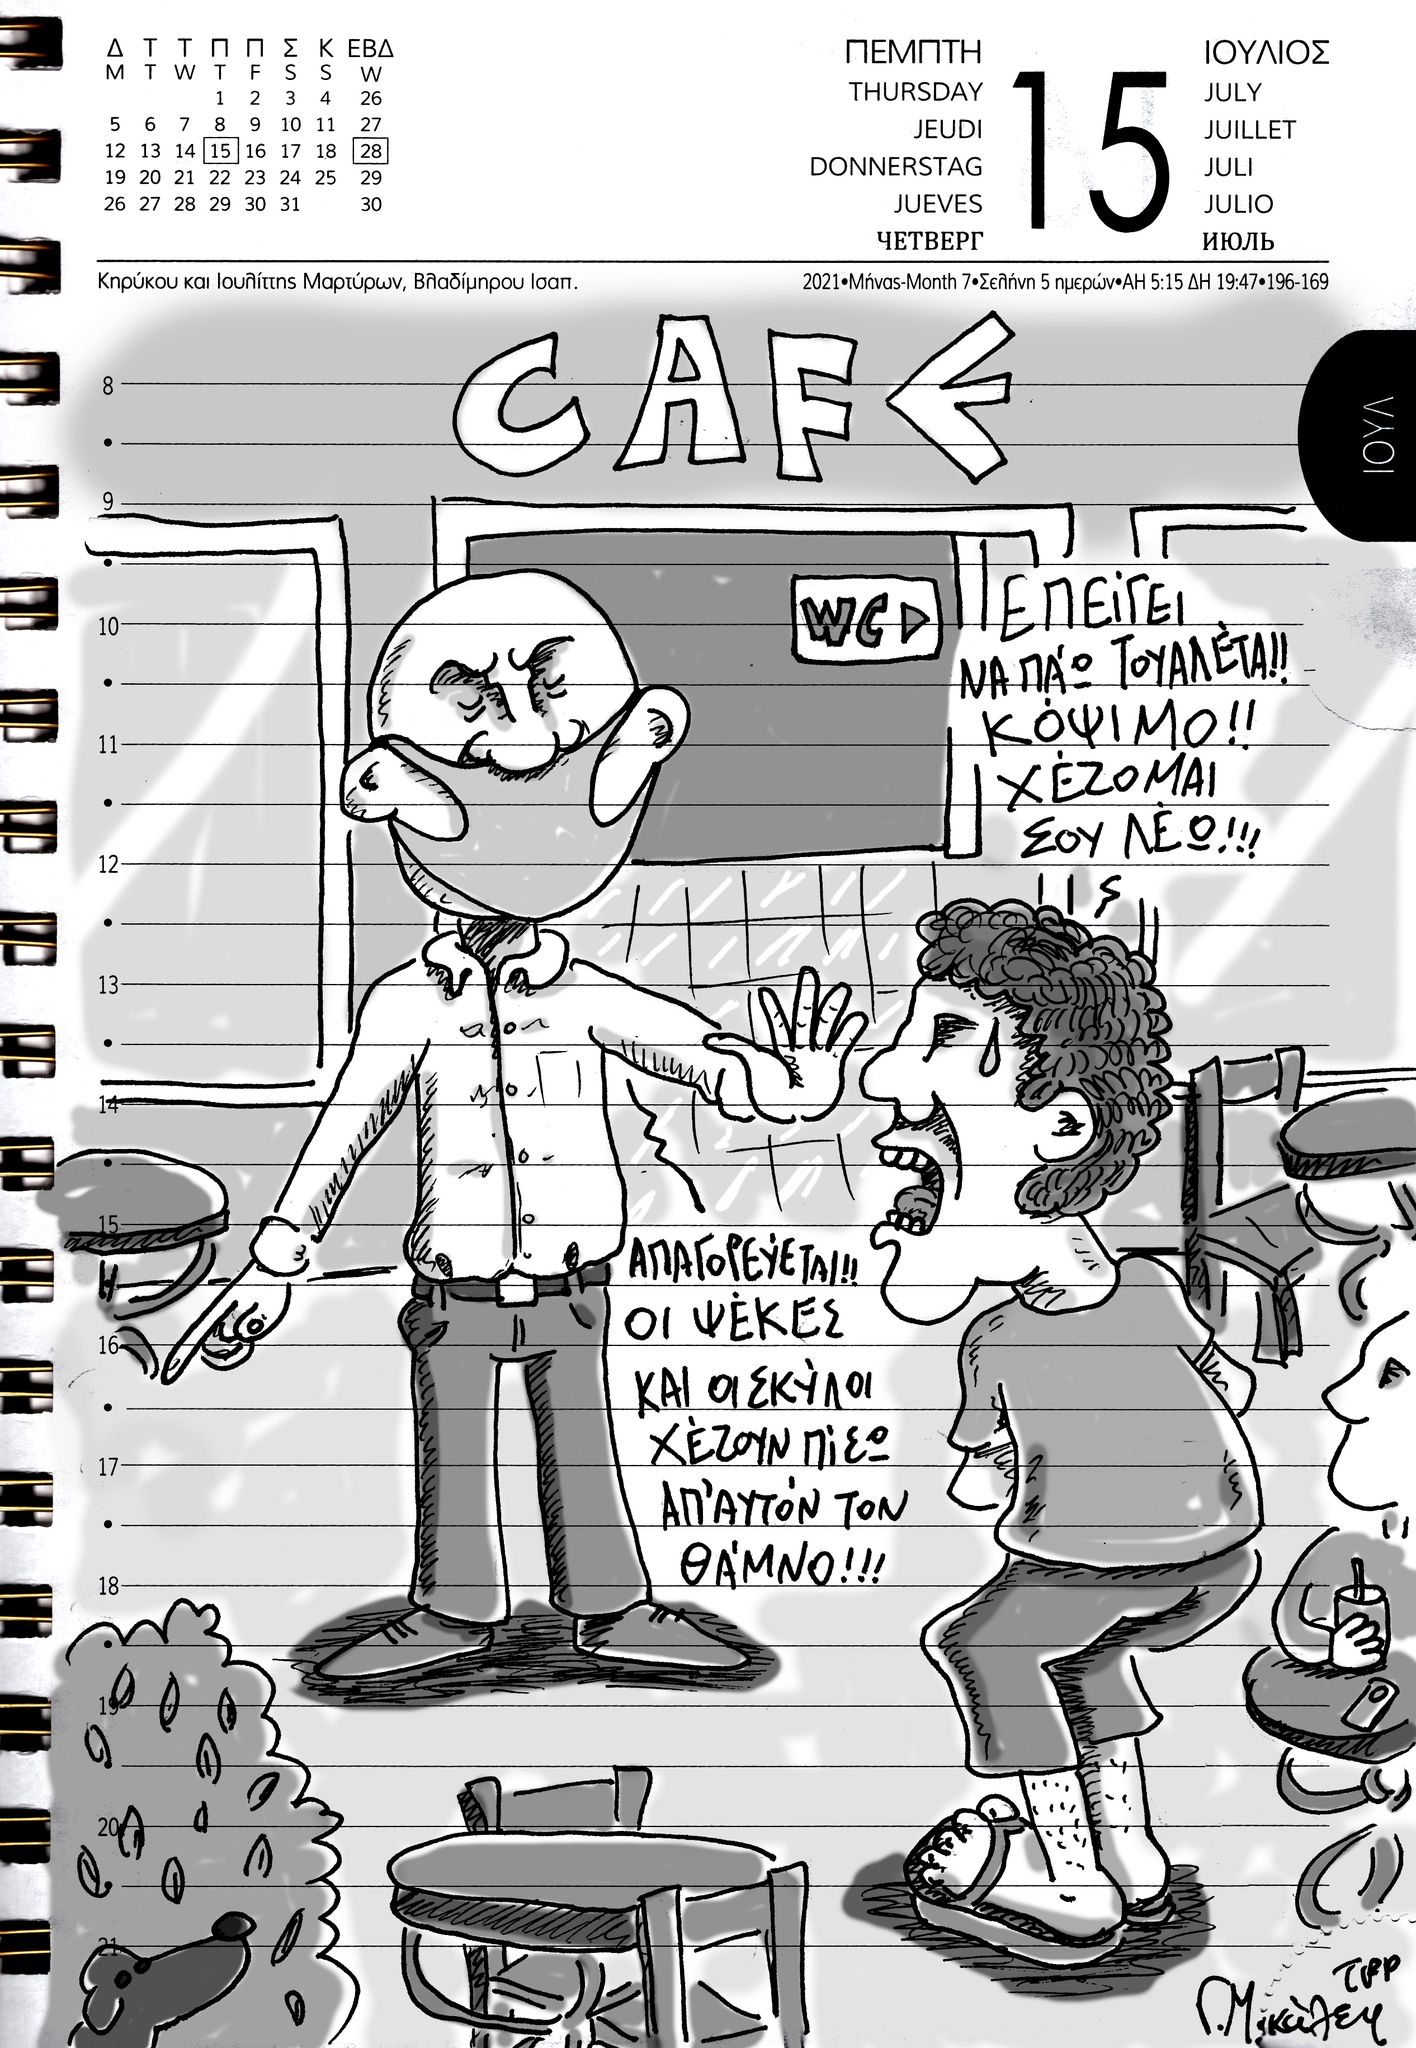 Δ Τ Τ Π Π Σ Κ ΕΒΔ
M T W T F S S W
1 2 3 4 26
5 6 7 8 9 10 11 27
12 13 14 15 16 17 18 28
19 20 21 22 23 24 25 29
26 27 28 29 30 31 30
ΠΕΜΠΤΗ
THURSDAY
JEUDI
DONNERSTAG
JUEVES
ЧЕТВЕРГ
15
ΙΟΥΛΙΟΣ
JULY
JUILLET
JULI
JULIO
ИЮЛЬ
Κηρύκου και Ιουλίττης Μαρτύρων, Βλαδίμηρου Ισαπ.
2021•Μήνας-Month 7•Σελήνη 5 ημερών•ΑΗ 5:15 ΔΗ 19:47•196-169
ΙΟΥΛ
CAFE
8
9
10
11
12
13
14
15
16
17
18
19
20
21
WC
ΕΠΕΊΓΕΙ
ΝΑ ΠΆΩ ΤΟΥΑΛΈΤΑ!!
ΚΌΨΙΜΟ!!
ΧΈΖΟΜΑΙ
ΣΟΥ ΛΈΩ!!!
ΑΠΑΓΟΡΕΎΕΤΑΙ!!
ΟΙ ΨΈΚΕΣ
ΚΑΙ ΟΙ ΣΚΎΛΟΙ
ΧΈΖΟΥΝ ΠΊΣΩ
ΑΠ'ΑΥΤΌΝ ΤΟΝ
ΘΆΜΝΟ!!!